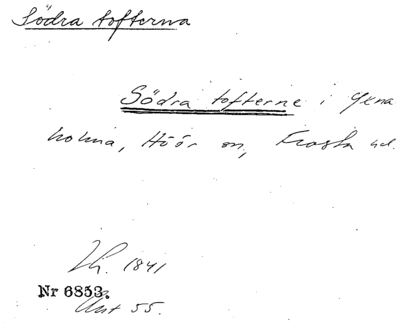 Södra tofterna
Södra tofterne i Gena
holma, Höör sn, Frosta hd.
Lh. 1841
Nr 6853.
Akt 55.